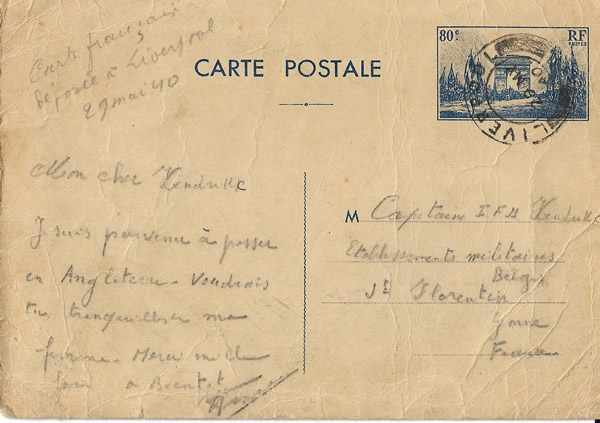 Carte française
déposée à Liverpool
29 mai 40
80c
RF
POSTES
CARTE POSTALE
LIVERPOOL
29 MY
40
Mon cher Hendrickx
Je suis parvenu à passer
en Angleterre - Voudrais
tu tranquilliser ma
femme - Merci mille
fois à Bientot
M Capitain I F H Hendrickx
Etablissements militaires
Belges
St Florentin
Yonne
France